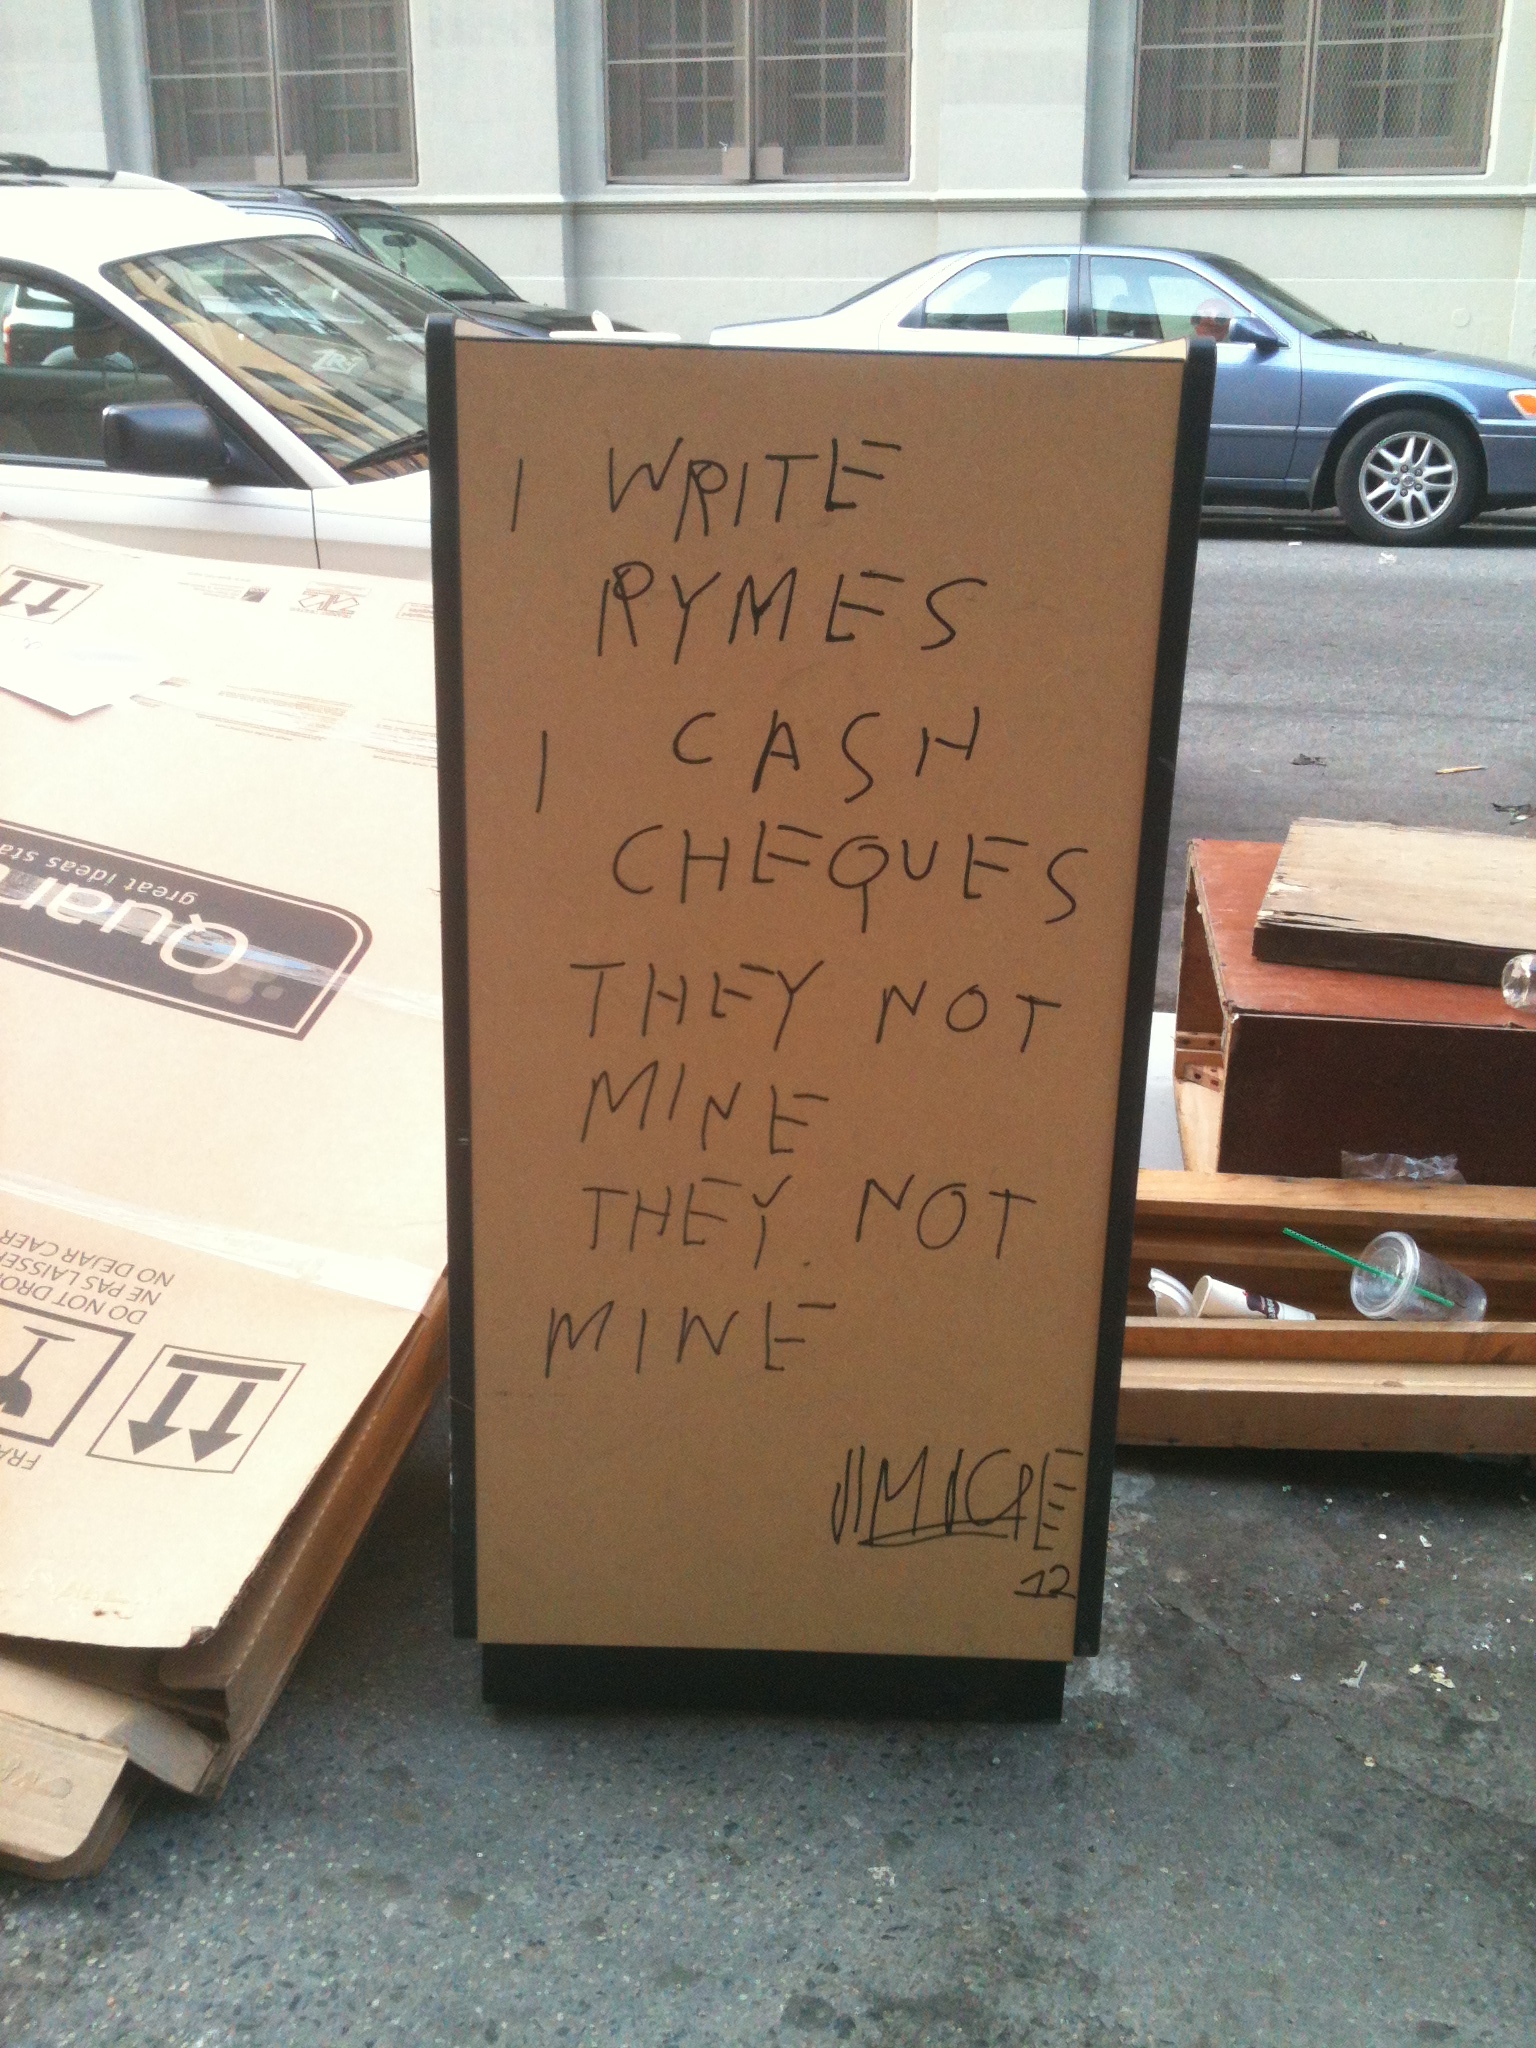 I WRITE
RYMES
I CASH
CHEQUES
THEY NOT
MINE
THEY NOT
MINE
12
Quar
great ideas sta
DO NOT DRO
NE PAS LAISSER
NO DEJAR CAER
FRA